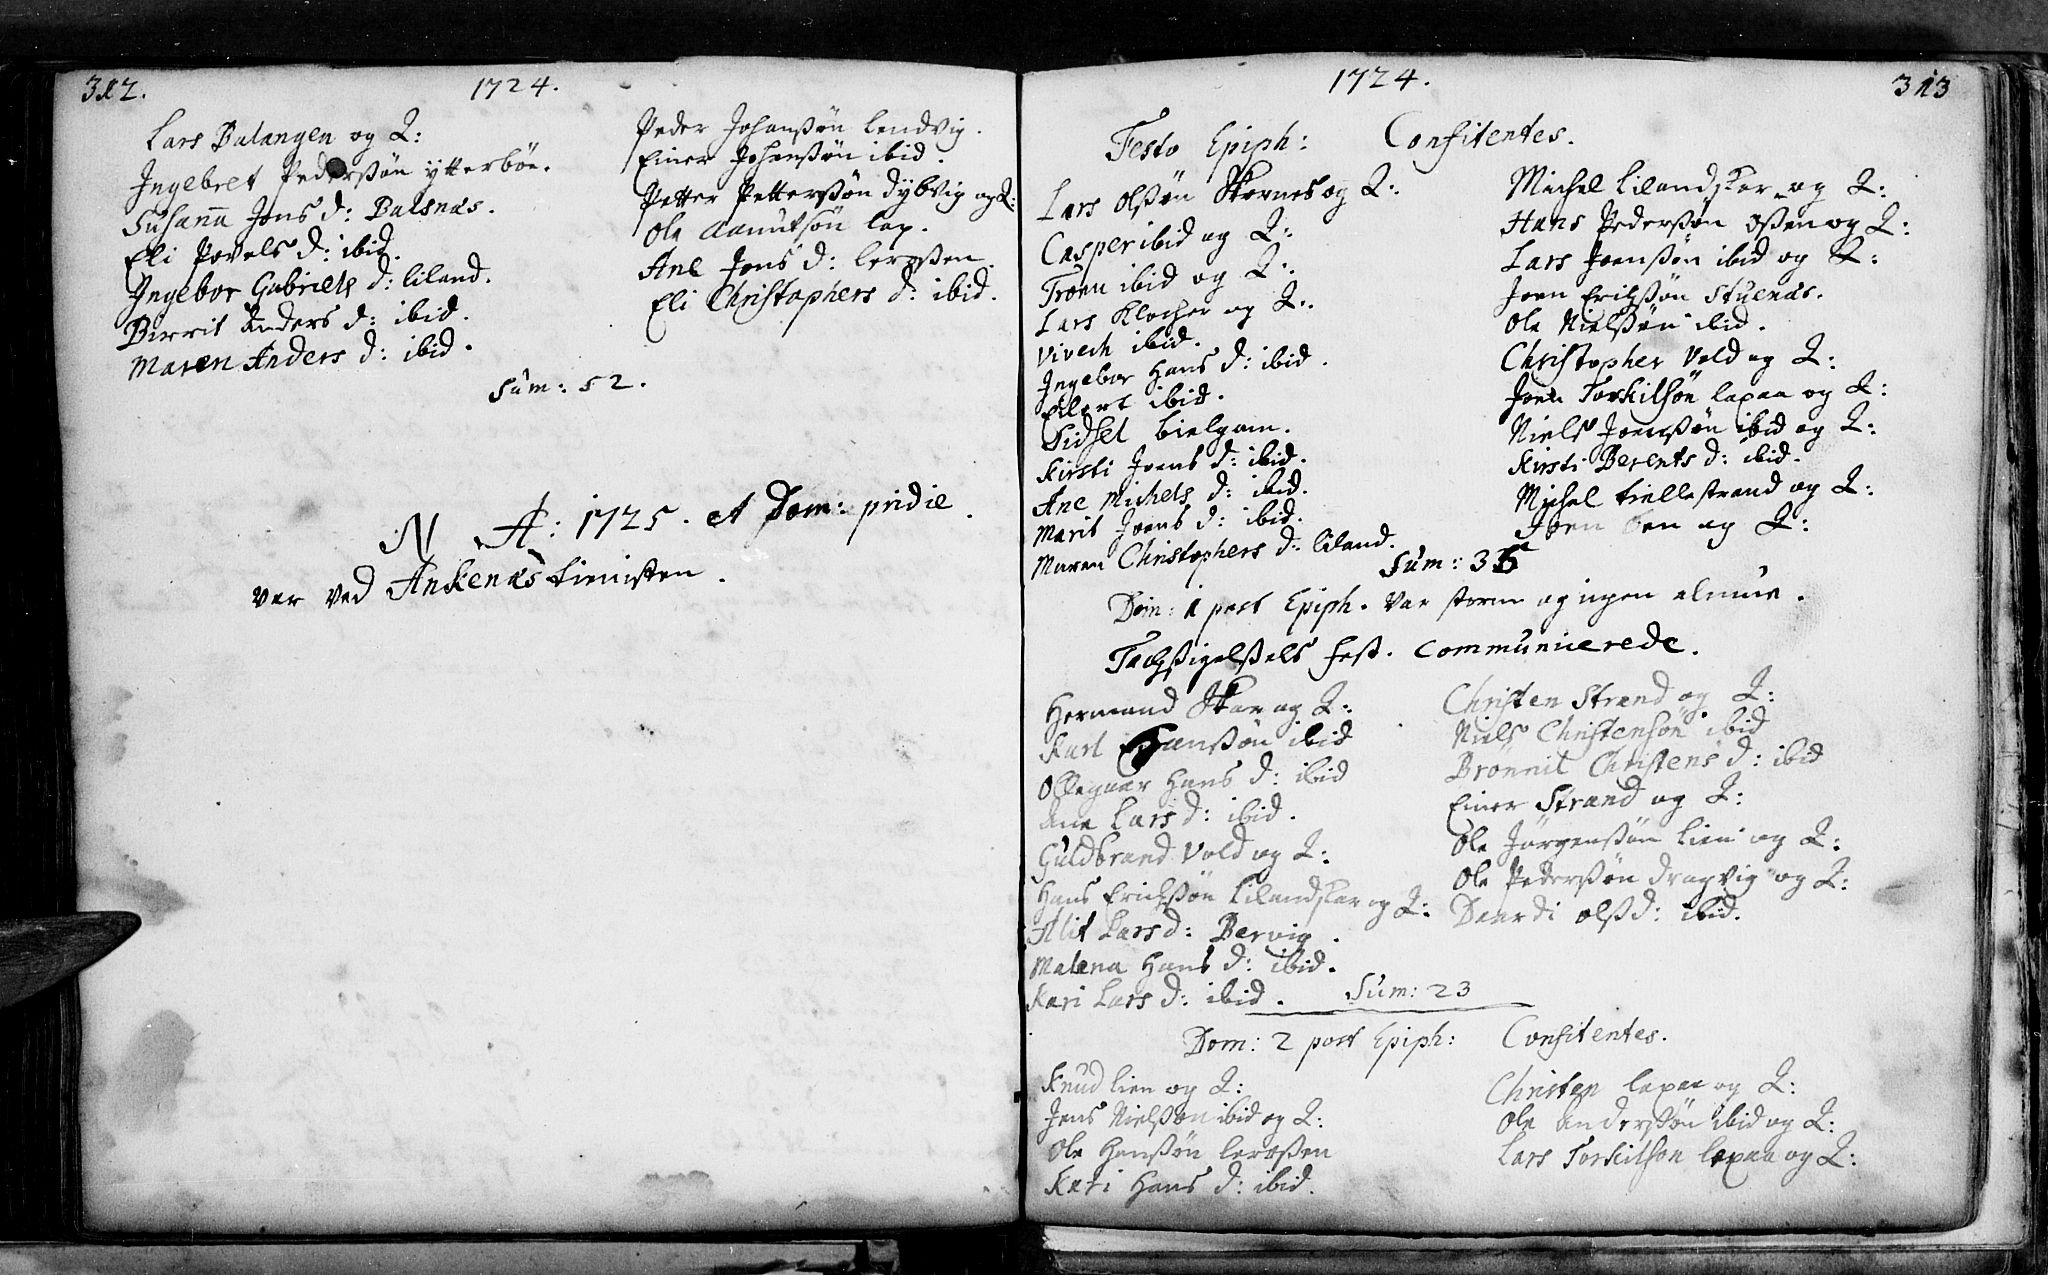 312.
1724.
Lars Balangen og Q:
Ingebret Pederssøn ytterbøe.
Susanna Jons d: Balsnæs.
Eli Povels d: ibid.
Ingebor Gabriels d: liland.
Birrit Anders d: ibid.
Maren Anders d: ibid.
Peder Johanssøn lendvig.
Einer Johanssøn ibid.
Petter Petterssøn dybvig og Q:
Ole Aanutsøn lap.
Ane Jons d: leraassen.
Eli Christophers d: ibid.
Sum: 52.
N A: 1725. et Dom: pridie
var ved Ankenæs tienisten.
1724.
313
Festo Epiph: Confitentes.
Lars Olssøn Skarnes og Q:
Casper ibid og Q:
Troen ibid og Q:
Lars Klocher og Q:
Vivech ibid.
Ingebor Hans d: ibid.
Eilert ibid.
Sidsel bielgam.
Kirsti Joens d: ibid.
Ane Michels d: ibid.
Marit Joens d: ibid.
Maren Christophers d: liland.
Michel Lilandskar og Q:
Hans Pederssøn Ossen og Q:
Lars Joenssøn ibid og Q:
Joen Erichssøn Stuenæs.
Ole Nielssøn ibid.
Christopher Vold og Q:
Joen Torkilsøn lapaa og Q:
Niels Joenssøn ibid og Q:
Kirsti Berents d: ibid.
Michel tiellestrand og Q:
Joen og Q:
Sum: 35
Dom: 1 post Epiph. var storm og ingen almue.
Tachsigelsels fest. Communicerede.
Hermand Skar og Q:
Karl Hanssøn ibid
Ollegaar Hans d: ibid
Ane Lars d: ibid.
Guldbrand Vold og Q:
Hans Erichssøn Lilandskar og Q:
Alit Lars d: Bervig.
Malena Hans d: ibid.
Kari Lars d: ibid.
Christen Strand og Q:
Niels Christensøn ibid
Brønnil Christens d: ibid
Einer Strand og Q:
Ole Jørgenssøn lien og Q:
Ole Pederssøn dragvig og Q:
Daardi olss d: ibid.
Sum: 23
Dom: 2 post Epiph: Confitentes.
Knud lien og Q:
Jens Nielssøn ibid og Q:
Ole Hanssøn leraassen
Kari Hans d: ibid.
Christen lapaa og Q:
Ole Anderssøn ibid og Q:
Lars Torkilsøn lapaa og Q: